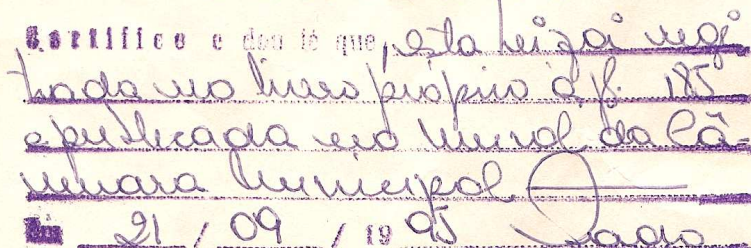 Certifico e dou fé que, esta Lei foi regis
trada no livro próprio à fl. 185
e publicada no Mural da Câ-
mara Municipal
Em 21 / 09 / 19 95